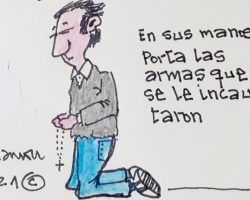 En sus manos
Porta las
armas que
se le incau
taron
21 ©